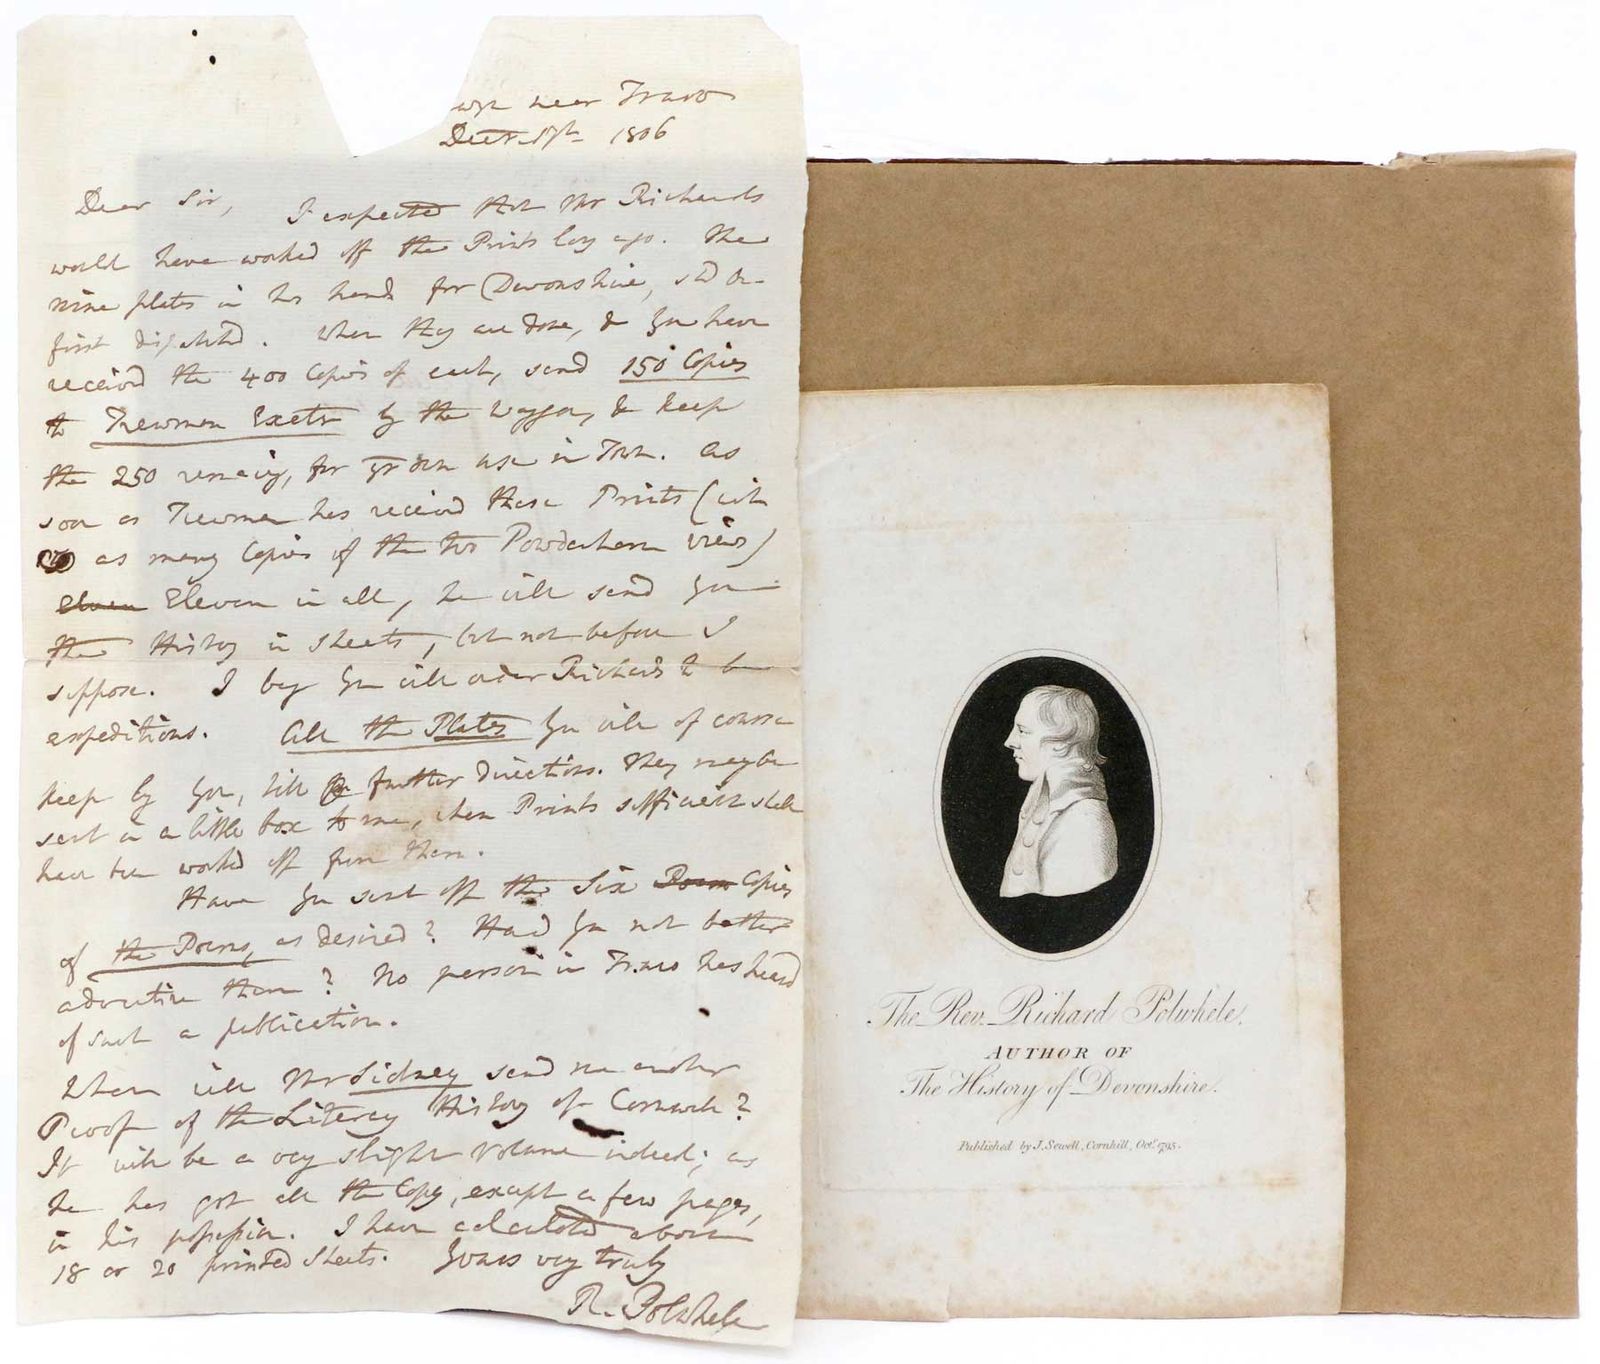 near Truro
1806
Dear Sir, I expected that Mr Richards
would have worked off the Prints long ago. The
nine plates in his hands for Devonshire, shd be
first dispatchd. When they are done, & you have
receivd the 400 Copies of each, send 150 Copies
to Trewman Exeter by the Waggon, & keep
the 250 remaing, for yr own use in Town. As
soon as Trewman has receivd these Prints (with
as many Copies of the two Powderham views)
Eleven Eleven in all, he will send you
the History in sheets, but not before I
suppose. I beg you will order Richards to be
expeditious. All the Plates you will of course
keep by you, till further directions. They may be
sent in a little box to me, when Prints sufficient shall
have been worked off from them.
Have you sent off the Six Poem Copies
of the Poems, as desired? Had you not better
advertise them? No person in Truro has heard
of such a publication.
When will Mr Sidney send me another
Proof of the Literary History of Cornwall?
It will be a very slight volume indeed; as
he has got all the Copy, except a few pages,
in his possession. I have calculated about
18 or 20 printed sheets. Yours very truly
R. Polwhele
The Rev. Richard Polwhele.
AUTHOR OF
The History of Devonshire.
Published by J. Sewell, Cornhill, Octr. 1795.